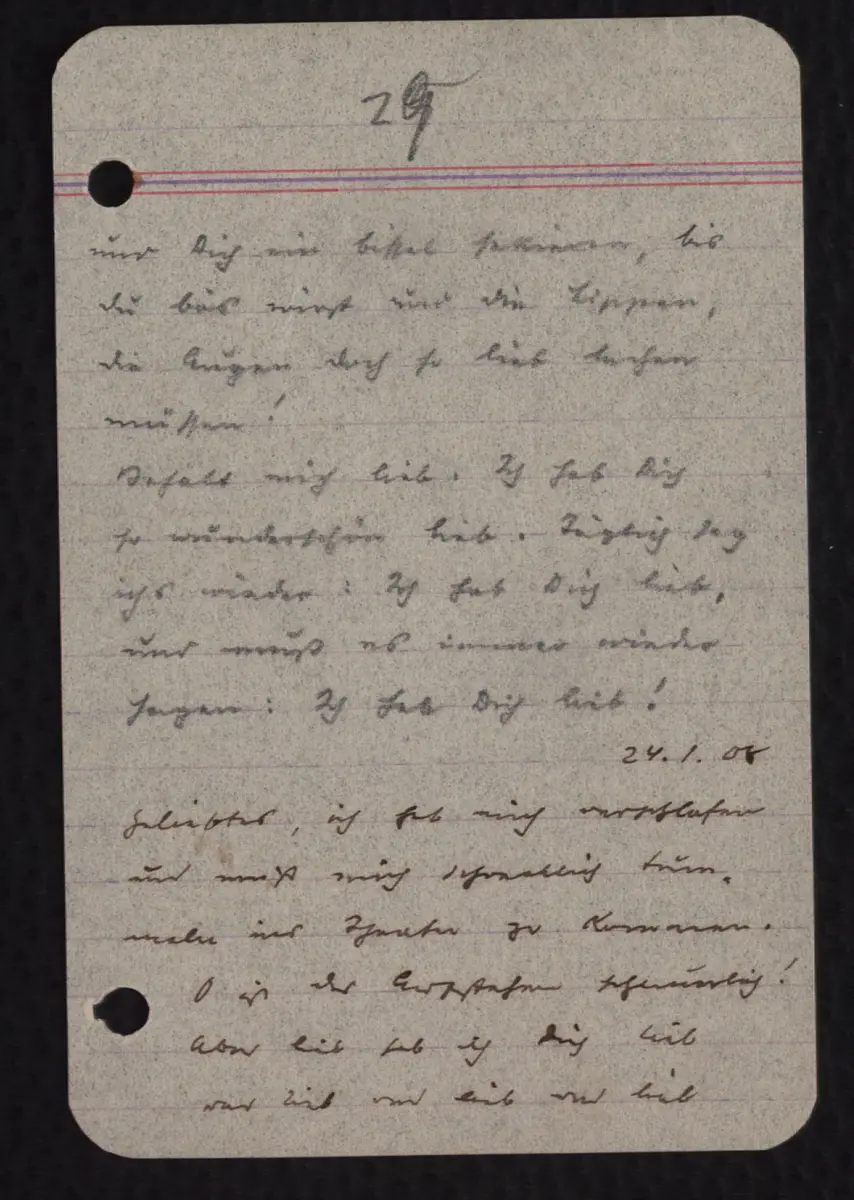 29
und Dich ein bissel sekieren, bis
du bös wirst und die Lippen,
die Augen doch so lieb lachen
müssen!
Behalt mich lieb. Ich hab Dich
so wunderschön lieb. Täglich sag
ichs wieder: Ich hab Dich lieb,
und muß es immer wieder
sagen: Ich hab Dich lieb!
24.1.08
Geliebtes, ich hab mich verschlafen
und muß mich schrecklich tum-
meln ins Theater zu kommen.
O ist das Aufstehen scheuerlich!
Aber lieb hab ich Dich lieb
und lieb und lieb und lieb